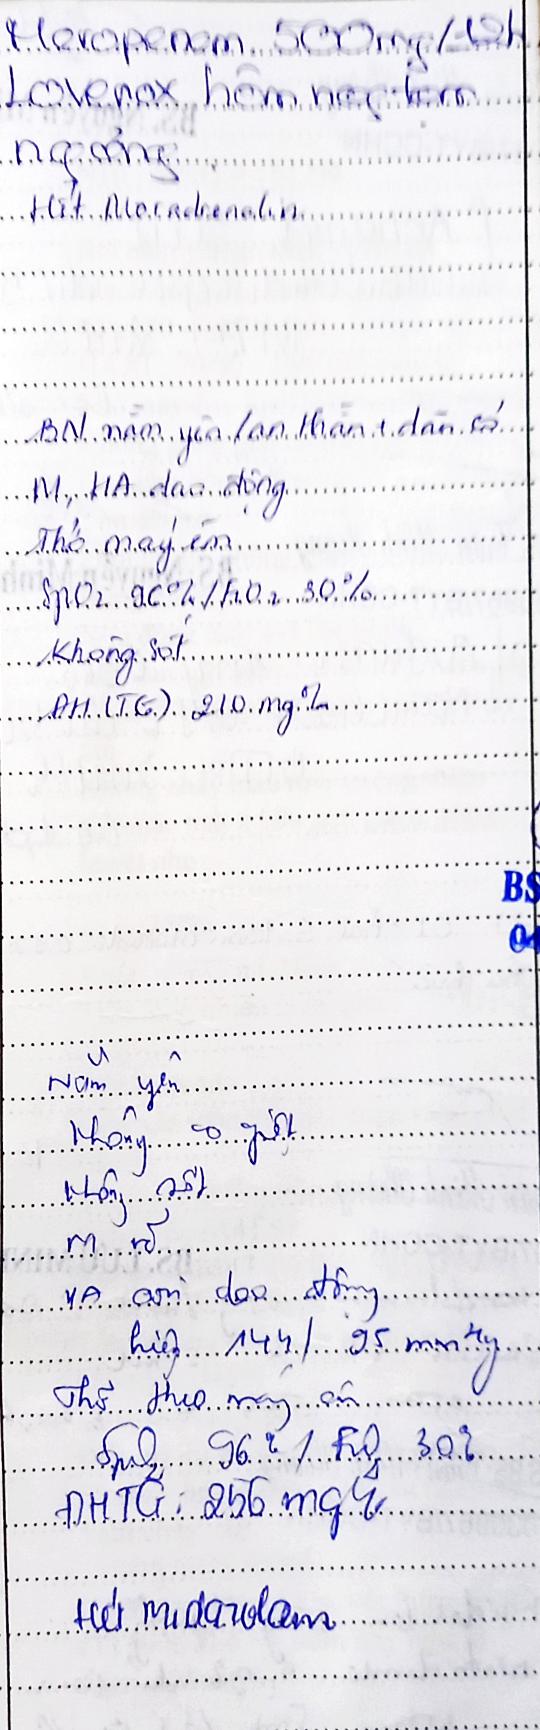 Meropenem 500mg/12h
Lovenox hôm nay tạm
ngưng
Hết Noradrenalin
BN nằm yên/an thần + dãn cơ
M, HA dao động
Thở máy êm
SpO2 96%/FiO2 30%
Không sốt
ĐH(TG) 210 mg%
BS
04
Nằm yên
Không co giật
Không sốt
M rõ
HA còn dao động
hiện 144/95 mmHg
Thở theo máy êm
SpO2 96%/FiO2 30%
ĐHTG: 256 mg%
Hết midazolam